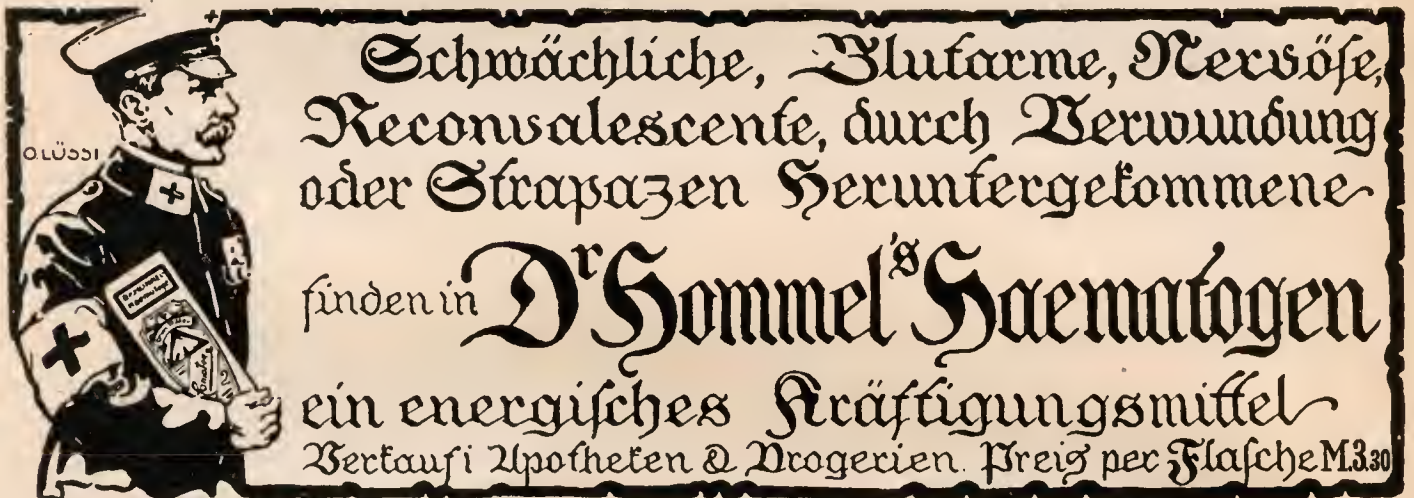 Schwächliche, Blutarme, Nervöse,
Reconvalescente, durch Verwundung
oder Strapazen Heruntergekommene
finden in Dr Hommel's Haematogen
ein energisches Kräftigungsmittel
Verkauf i Apotheken & Drogerien. Preis per Flasche M.3.30
O. LÜSSI
Dr. HOMMEL'S
Haematogen